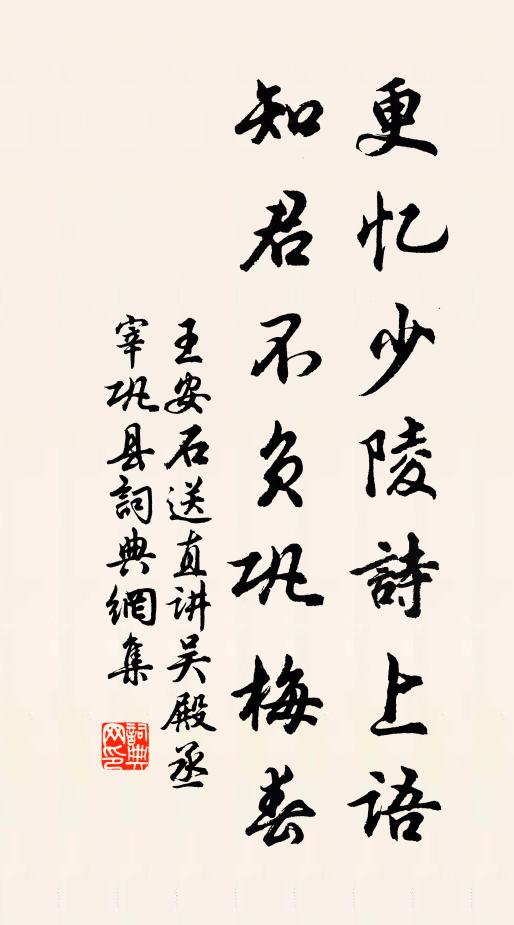 更忆少陵詩上語
知君不负巩梅春
王安石送直讲吴殿丞
宰巩县詞典網集
詞典网印